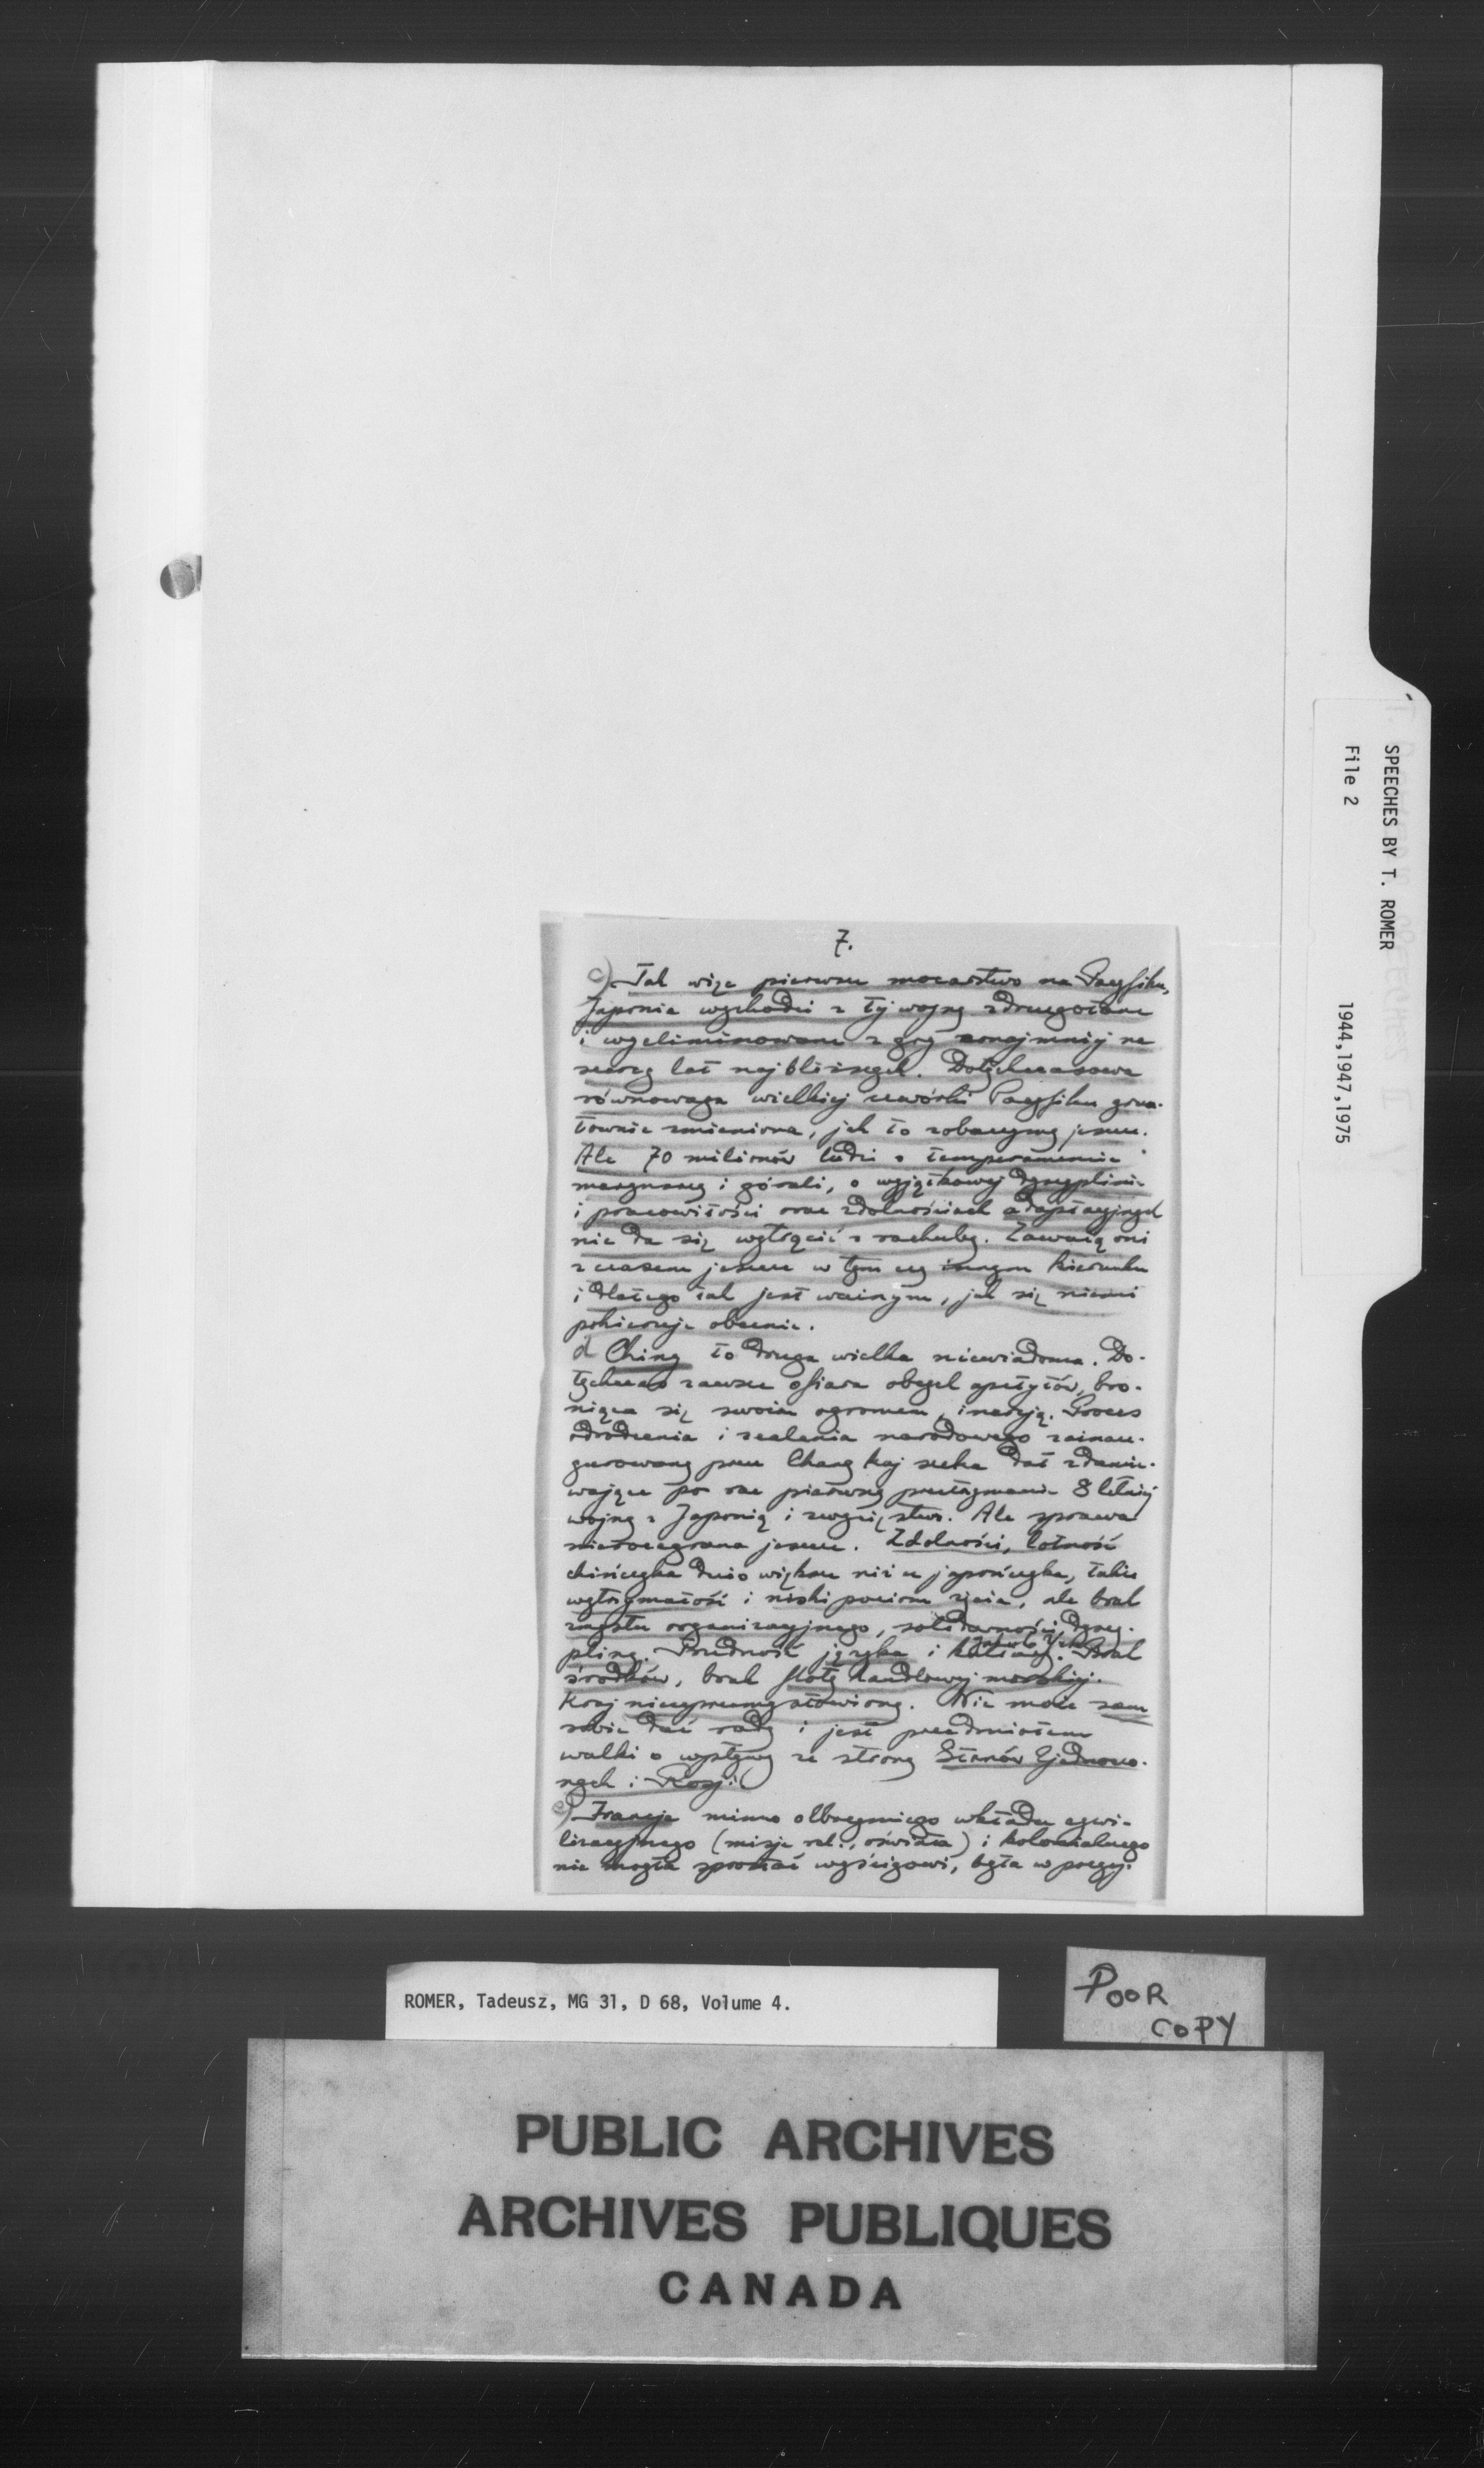 SPEECHES BY T. ROMER
File 2
1944,1947,1975
7.
c) Tak więc pierwsze mocarstwo na Pacyfiku,
Japonia wychodzi z tej wojny zdruzgotane
i wyeliminowane z gry conajmniej na
szereg lat najbliższych. Dotychczasowa
równowaga wielkiej czwórki Pacyfiku grun-
townie zmieniona, jak to zobaczymy jeszcze.
Ale 70 milionów ludzi o temperamencie
marynarzy i górali, o wyjątkowej dyscyplinie
i pracowitości oraz zdolnościach adaptacyjnych
nie da się wytrącić z rachuby. Zaważą oni
z czasem jeszcze w tym czy innym kierunku
i dlatego tak jest ważnym, jak się niemi
pokieruje obecnie.
d Chiny to druga wielka niewiadoma. Do-
tychczas zawsze ofiara obcych apetytów, bro-
niąca się swoim ogromem, inercją. Proces
odrodzenia i scalenia narodowego zainau-
gurowany przez Chang Kaj szeka dał zdumie-
wające po raz pierwszy przetrzymanie 8 letniej
wojny z Japonią i zwycięstwo. Ale sprawa
nierozegrana jeszcze. Zdolności, lotność
chińczyka dużo większe niż u japończyka, takie
wytrzymałość i niski poziom życia, ale brak
zmysłu organizacyjnego, solidarności, dyscy-
pliny. Trudność języka i Brak
środków, brak floty handlowej morskiej.
Kraj nieuprzemysłowiony. Nie może sam
sobie dać rady i jest przedmiotem
walki o wpływy ze strony Stanów Zjednoczo-
nych i Rosji.
e) Francja mimo olbrzymiego wkładu cywi-
lizacyjnego (misje rel., oświata) i kolonialnego
nie mogła sprostać wyścigowi, była w pozycji
ROMER, Tadeusz, MG 31, D 68, Volume 4.
POOR
COPY
PUBLIC ARCHIVES
ARCHIVES PUBLIQUES
CANADA